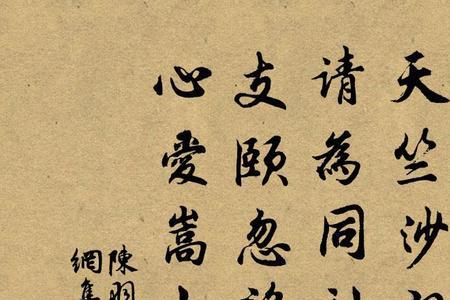 天竺沙
请為同
支頤忽
心愛嵩
陳
網集